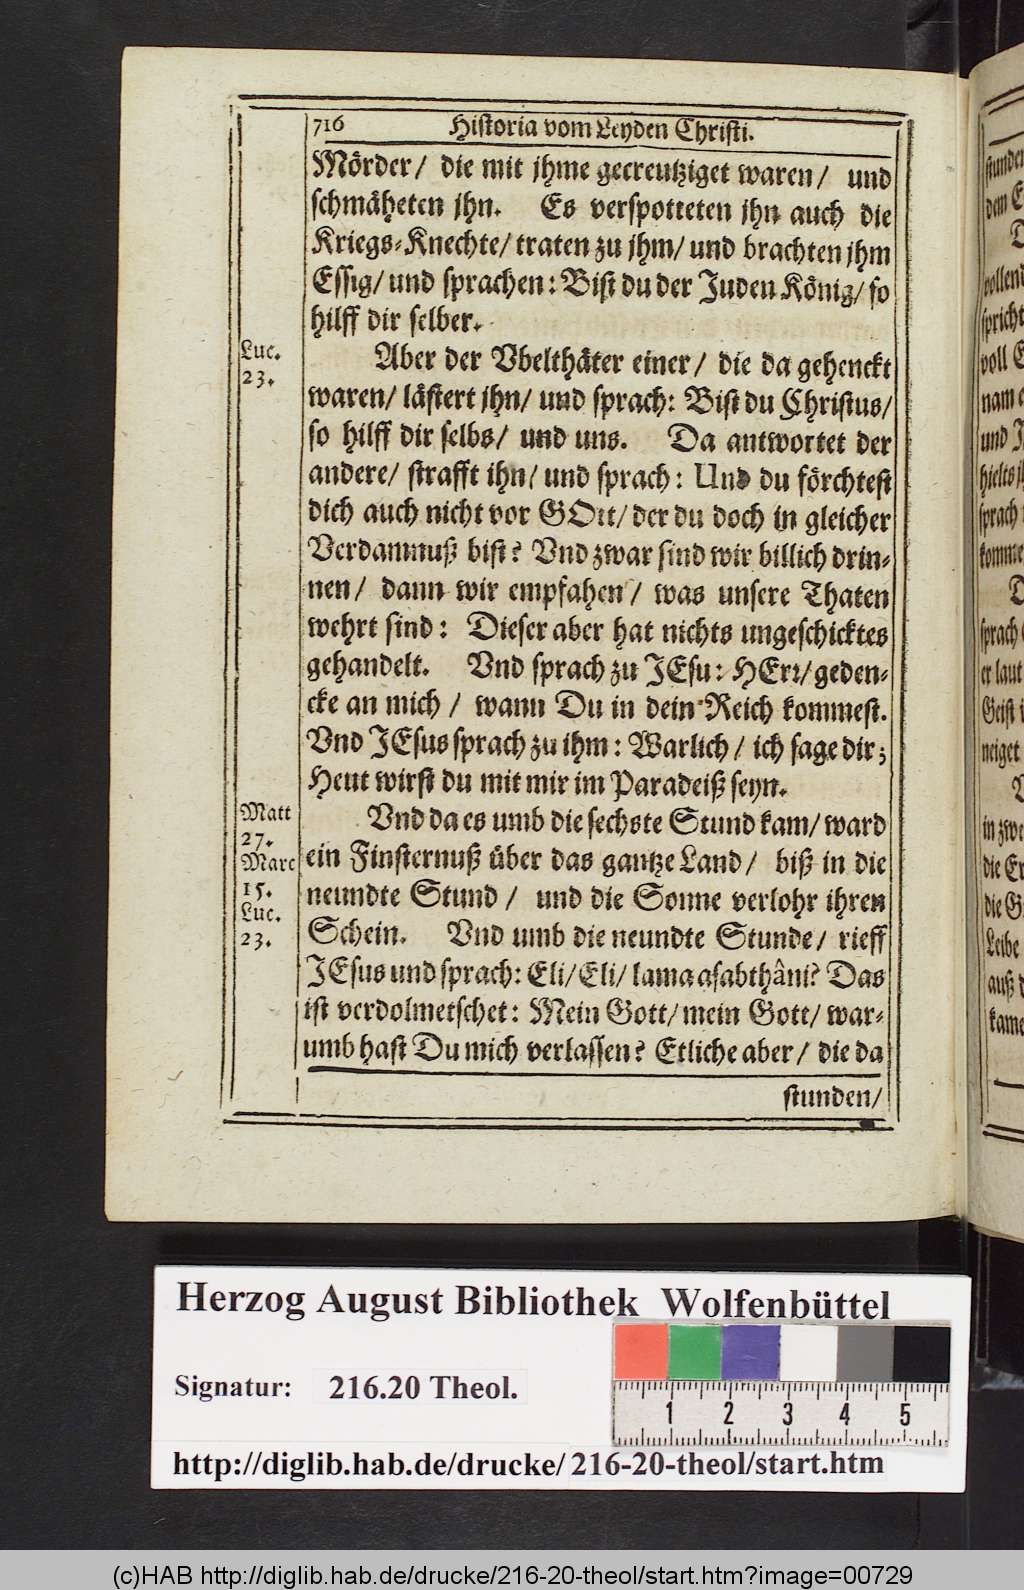 716 Historia vom Leyden Christi.
Mörder/ die mit jhme gecreutziget waren/ und
schmäheten jhn. Es verspotteten jhn auch die
Kriegs-Knechte/ traten zu jhm/ und brachten jhm
Essig/ und sprachen: Bist du der Juden König/ so
hilff dir selber.
Luc.
23.
Aber der Vbelthäter einer/ die da gehenckt
waren/ lästert jhn/ und sprach: Bist du Christus/
so hilff dir selbs/ und uns. Da antwortet der
andere/ strafft ihn/ und sprach: Und du förchtest
dich auch nicht vor GOtt/ der du doch in gleicher
Verdamnuß bist? Vnd zwar sind wir billich drin-
nen/ dann wir empfahen/ was unsere Thaten
wehrt sind: Dieser aber hat nichts ungeschicktes
gehandelt. Vnd sprach zu JEsu: HErr/ geden-
cke an mich/ wann Du in dein Reich kommest.
Vnd JEsus sprach zu ihm: Warlich/ ich sage dir;
Heut wirst du mit mir im Paradeiß seyn.
Matt
27.
Marc
15.
Luc.
23.
Vnd da es umb die sechste Stund kam/ ward
ein Finsternuß über das gantze Land/ biß in die
neundte Stund/ und die Sonne verlohr ihren
Schein. Vnd umb die neundte Stunde/ rieff
JEsus und sprach: Eli/ Eli/ lama asabthâni? Das
ist verdolmetschet: Mein Gott/ mein Gott/ war-
umb hast Du mich verlassen? Etliche aber/ die da
stunden/
stunden
dem
vollend
spricht
voll
nam
und
hielts
sprach
komme
sprach
er laut
Geist
neiget
in zwe
die
die
Leibe
auß
kame
Herzog August Bibliothek Wolfenbüttel
Signatur: 216.20 Theol.
1 2 3 4 5
http://diglib.hab.de/drucke/216-20-theol/start.htm
(c)HAB http://diglib.hab.de/drucke/216-20-theol/start.htm?image=00729